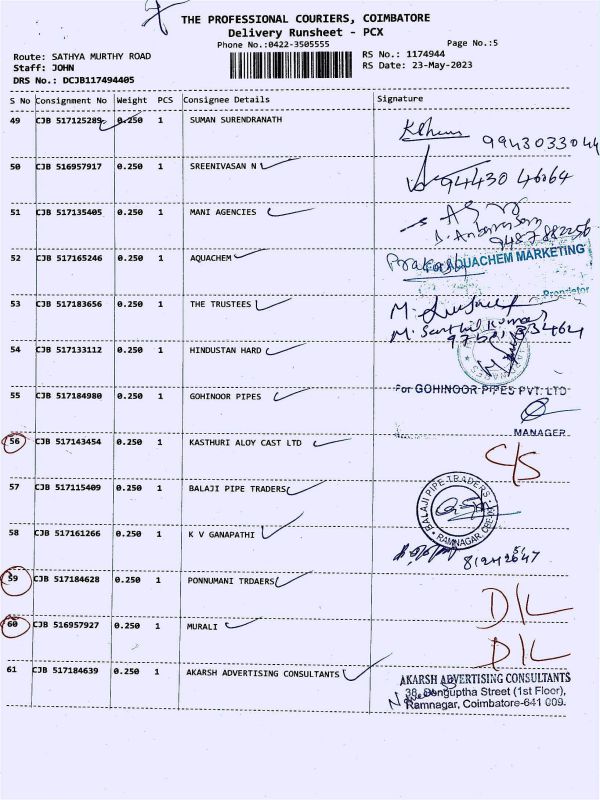 THE PROFESSIONAL COURIERS, COIMBATORE
Delivery Runsheet - PCX
Phone No.:0422-3505555
Page No.:5
Route: SATHYA MURTHY ROAD
RS No.: 1174944
Staff: JOHN
RS Date: 23-May-2023
DRS No.: DCJB117494405
S No Consignment No Weight PCS Consignee Details Signature
49 CJB 517125289 0.250 1 SUMAN SURENDRANATH
9943033044
50 CJB 516957917 0.250 1 SREENIVASAN N
94430 46064
51 CJB 517135405 0.250 1 MANI AGENCIES
9487882256
52 CJB 517165246 0.250 1 AQUACHEM
Prakash AQUACHEM MARKETING
Proprietor
53 CJB 517183656 0.250 1 THE TRUSTEES
M. Senthil Kumar
54 CJB 517133112 0.250 1 HINDUSTAN HARD
55 CJB 517184980 0.250 1 GOHINOOR PIPES
For GOHINOOR PIPES PVT. LTD
MANAGER
56 CJB 517143454 0.250 1 KASTHURI ALOY CAST LTD
C/S
57 CJB 517115409 0.250 1 BALAJI PIPE TRADERS
BALAJI PIPE TRADERS
RAMNAGAR CBE
58 CJB 517161266 0.250 1 K V GANAPATHI
59 CJB 517184628 0.250 1 PONNUMANI TRDAERS
D/L
60 CJB 516957927 0.250 1 MURALI
D/L
61 CJB 517184639 0.250 1 AKARSH ADVERTISING CONSULTANTS
AKARSH ADVERTISING CONSULTANTS
38, Senguptha Street (1st Floor),
Ramnagar, Coimbatore-641 009.